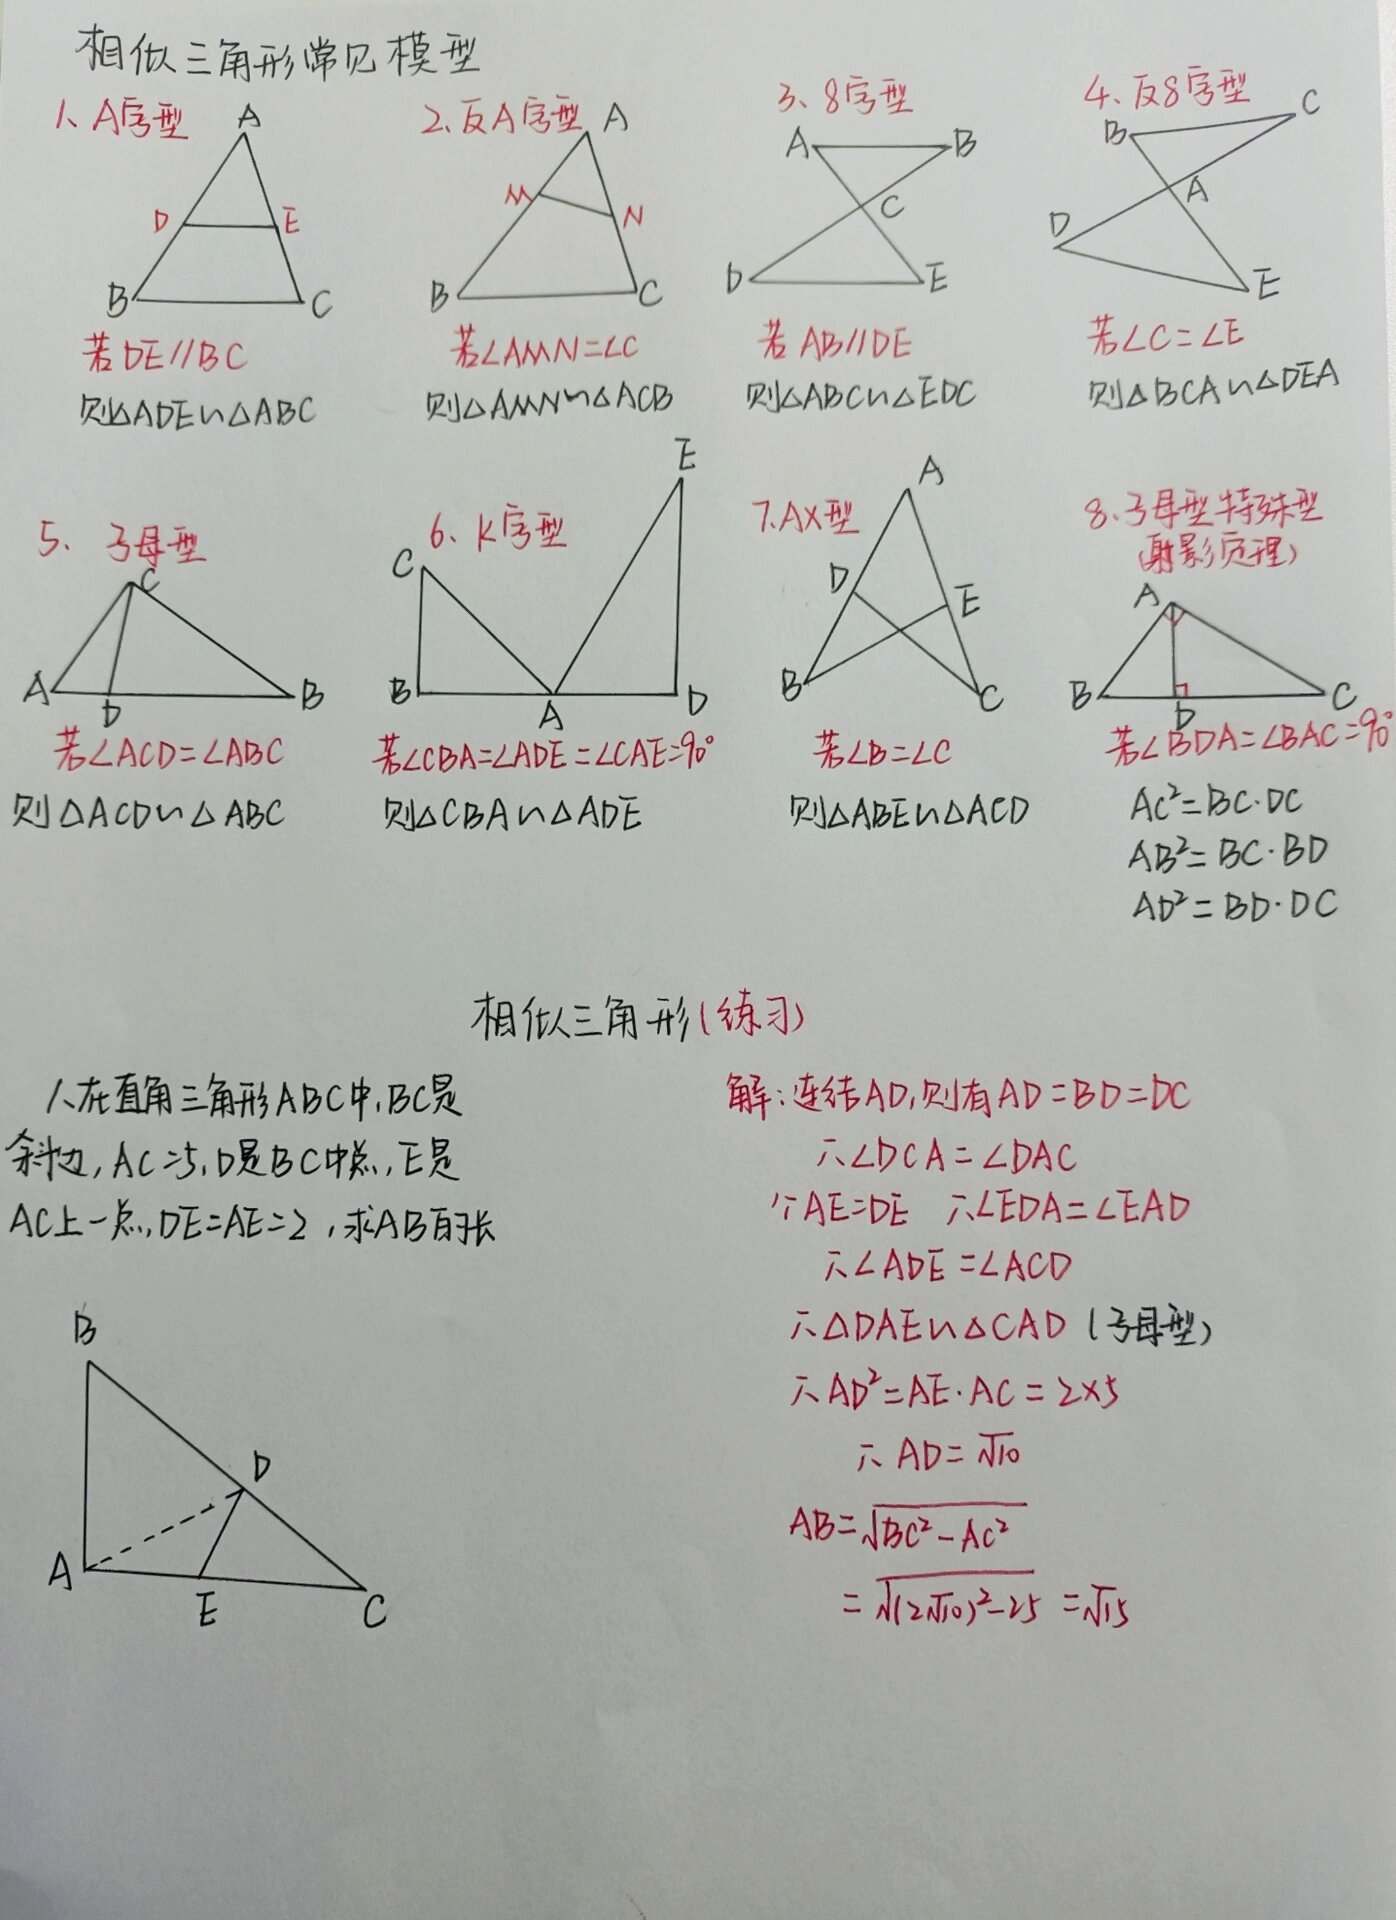 相似三角形常见模型
1、A字型
A
D E
B C
若DE//BC
则△ADE∽△ABC
2、反A字型
A
M N
B C
若∠AMN=∠C
则△AMN∽△ACB
3、8字型
A B
C
D E
若AB//DE
则△ABC∽△EDC
4、反8字型
B C
A
D
E
若∠C=∠E
则△BCA∽△DEA
5、子母型
C
A D B
若∠ACD=∠ABC
则△ACD∽△ABC
6、K字型
E
C
B A D
若∠CBA=∠ADE=∠CAE=90°
则△CBA∽△ADE
7.AX型
A
D E
B C
若∠B=∠C
则△ABE∽△ACD
8.子母型特殊型
(射影定理)
A
B D C
若∠BDA=∠BAC=90°
AC²=BC·DC
AB²=BC·BD
AD²=BD·DC
相似三角形(练习)
1、在直角三角形ABC中,BC是
斜边,AC=5,D是BC中点,E是
AC上一点,DE=AE=2,求AB的长
B
D
A E C
解:连结AD,则有AD=BD=DC
∴∠DCA=∠DAC
∵AE=DE ∴∠EDA=∠EAD
∴∠ADE=∠ACD
∴△DAE∽△CAD(子母型)
∴AD²=AE·AC=2×5
∴AD=√10
AB=√BC²-AC²
=√(2√10)²-25 =√15